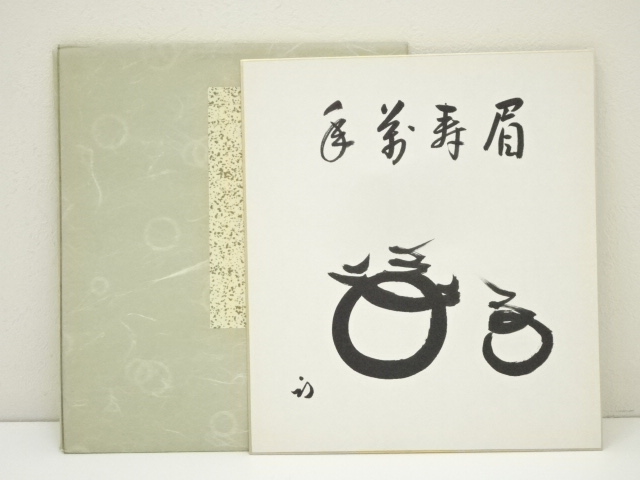 眉寿萬年